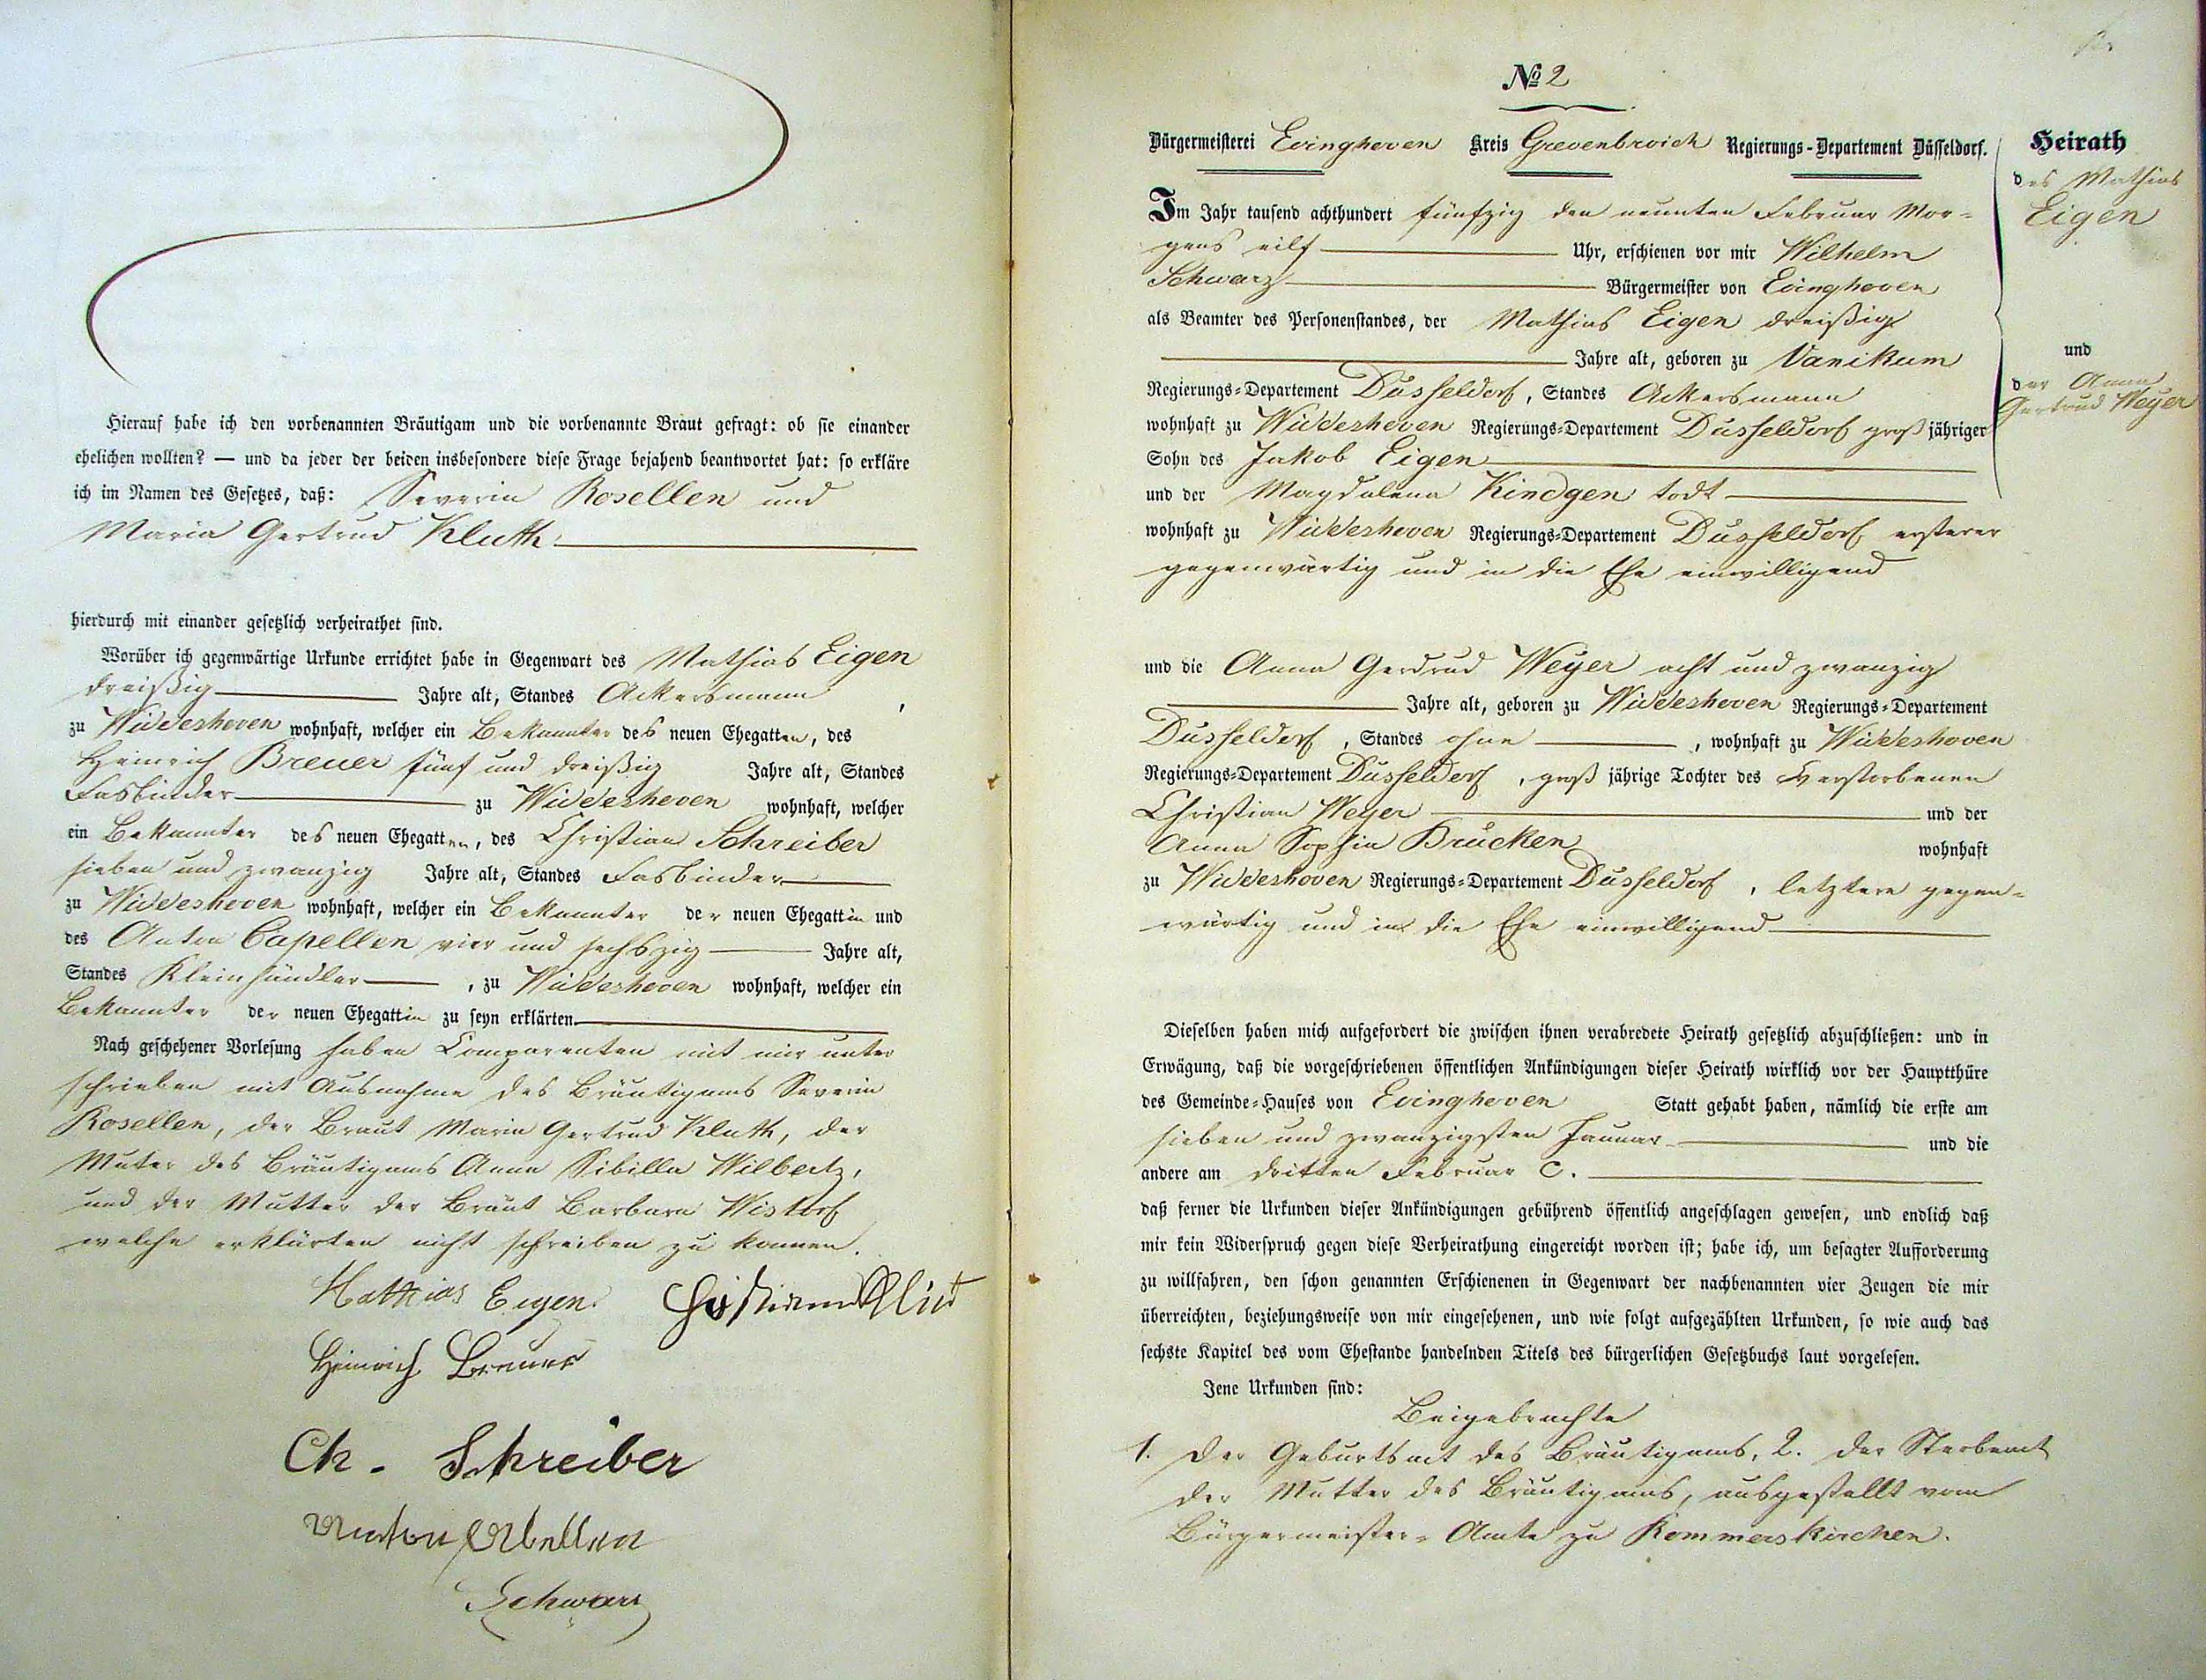 Hierauf habe ich den vorbenannten Bräutigam und die vorbenannte Braut gefragt: ob sie einander
ehelichen wollten? — und da jeder der beiden insbesondere diese Frage bejahend beantwortet hat: so erkläre
ich im Namen des Gesetzes, daß: Severin Rosellen und
Maria Gertrud Kluth
hierdurch mit einander gesetzlich verheirathet sind.
Worüber ich gegenwärtige Urkunde errichtet habe in Gegenwart des Mathias Eigen
dreißig Jahre alt, Standes Ackersmann,
zu Widdeshoven wohnhaft, welcher ein Bekannter des neuen Ehegatten, des
Heinrich Breuer fünf und dreißig Jahre alt, Standes
Fasbinder zu Widdeshoven wohnhaft, welcher
ein Bekannter des neuen Ehegatten, des Christian Schreiber
sieben und zwanzig Jahre alt, Standes Fasbinder
zu Widdeshoven wohnhaft, welcher ein Bekannter der neuen Ehegattin und
des Anton Capellen vier und sechszig Jahre alt,
Standes Kleinhändler, zu Widdeshoven wohnhaft, welcher ein
Bekannter der neuen Ehegattin zu seyn erklärten.
Nach geschehener Vorlesung haben Comparenten mit mir unter
schrieben mit Ausnahme des Bräutigams Severin
Rosellen, der Braut Maria Gertrud Kluth, der
Muter des Bräutigams Anna Sibilla Wilbertz,
und der Mutter der Braut Barbara Wistorf
welche erklärten nicht schreiben zu können.
Mathias Eigen
Heinrich Breuer
Ch. Schreiber
Anton
Schwarz
№ 2
Bürgermeisterei Evinghoven Kreis Grevenbroich Regierungs-Departement Düsseldorf.
Im Jahr tausend achthundert fünfzig den neunten Februar Mor-
gens eilf Uhr, erschienen vor mir Wilhelm
Schwarz Bürgermeister von Evinghoven
als Beamter des Personenstandes, der Mathias Eigen dreißig
Jahre alt, geboren zu Vanikum
Regierungs-Departement Düsseldorf, Standes Ackersmann
wohnhaft zu Widdeshoven Regierungs-Departement Düsseldorf großjähriger
Sohn des Jakob Eigen
und der Magdalena Kindgen todt
wohnhaft zu Widdeshoven Regierungs-Departement Düsseldorf ersterer
gegenwärtig und in die Ehe einwilligend
und die Anna Gerdrud Weyer acht und zwanzig
Jahre alt, geboren zu Widdeshoven Regierungs-Departement
Düsseldorf, Standes ohne, wohnhaft zu Widdeshoven
Regierungs-Departement Düsseldorf, großjährige Tochter des verstorbenen
Christian Weyer und der
Anna Sophia Brücken wohnhaft
zu Widdeshoven Regierungs-Departement Düsseldorf, letztere gegen-
wärtig und in die Ehe einwilligend
Dieselben haben mich aufgefordert die zwischen ihnen verabredete Heirath gesetzlich abzuschließen: und in
Erwägung, daß die vorgeschriebenen öffentlichen Ankündigungen dieser Heirath wirklich vor der Hauptthüre
des Gemeinde-Hauses von Evinghoven Statt gehabt haben, nämlich die erste am
sieben und zwanzigsten Januar und die
andere am dritten Februar C.
daß ferner die Urkunden dieser Ankündigungen gebührend öffentlich angeschlagen gewesen, und endlich daß
mir kein Widerspruch gegen diese Verheirathung eingereicht worden ist; habe ich, um besagter Aufforderung
zu willfahren, den schon genannten Erschienenen in Gegenwart der nachbenannten vier Zeugen die mir
überreichten, beziehungsweise von mir eingesehenen, und wie folgt aufgezählten Urkunden, so wie auch das
sechste Kapitel des vom Ehestande handelnden Titels des bürgerlichen Gesetzbuchs laut vorgelesen.
Jene Urkunden sind:
Beigebrachte
1. Der Geburtsact des Bräutigams, 2. der Sterbeact
der Mutter des Bräutigams, ausgestellt vom
Bürgermeister-Amte zu Rommerskirchen.
Heirath
des Mathias
Eigen
und
der Anna
Gertrud Weyer